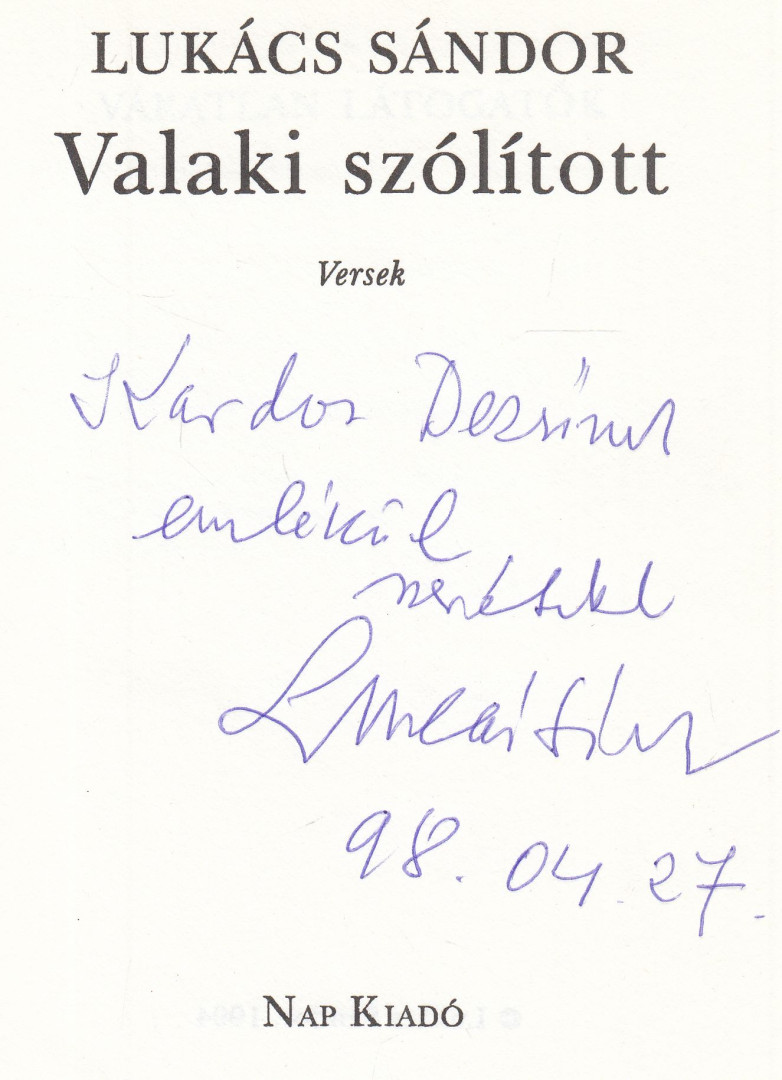 LUKÁCS SÁNDOR
Valaki szólított
Versek
Kardos Dezsőnek
emlékül
szeretettel
Lukács Sándor
98. 04. 27.
NAP KIADÓ